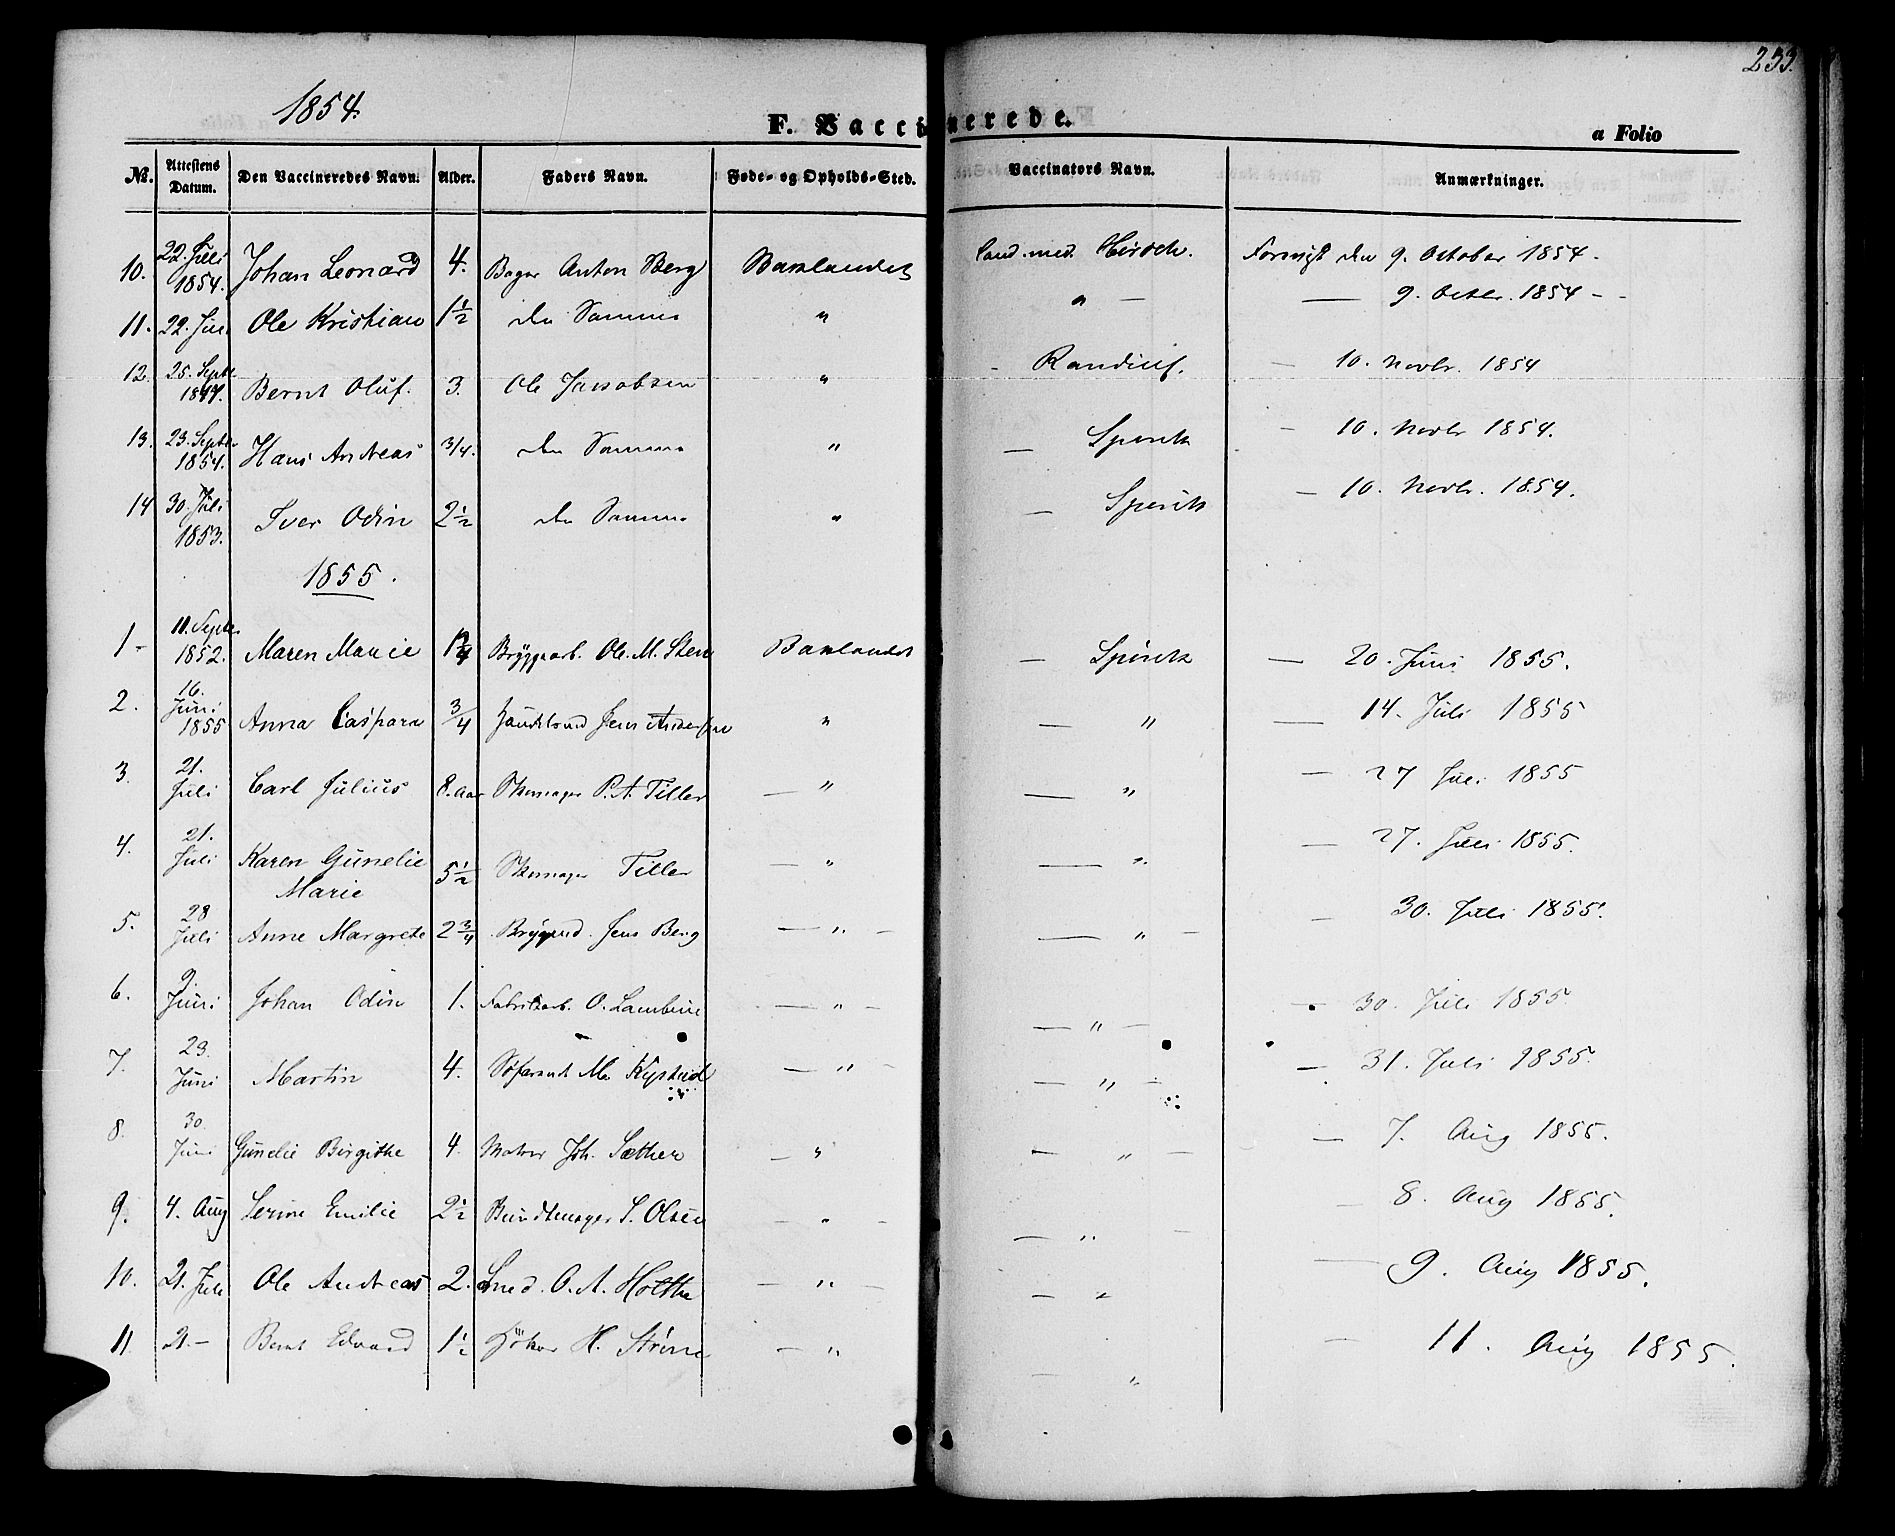 233.
1854.
F. Vaccinerede.
a Folio
No. Attestens Datum. Den Vaccineredes Navn. Alder. Faders Navn. Føde- og Opholds-Sted. Vaccinators Navn. Anmærkninger.
10. 22. Juli 1854. Johan Leonard 4. Bager Anton Berg Baklandet Cand. med. Hirsch. Forevist den 9. October 1854.
11. 22. Juni Ole Kristian 1 1/2 den Samme " " — — 9. Octbr. 1854 - -
12. 25. Septbr. Bernt Oluf. 3. Ole Jacobsen " - — 10. Novbr. 1854
13. 23. Septbr 1854. Hans Andreas 3/4. den Samme " — — 10. Novbr 1854.
14 30. Juli 1853. Iver Odin 2 1/2 den Samme " — — 10. Novbr. 1854.
1855.
1 - 11. Septbr 1852. Maren Marie Bryggearb. Ole. M. Sten Baklandet — — 20. Juni 1855.
2. 16. Juni 1855 Anna Caspara 3/4 Jens Anderssen " — " — 14. Juli 1855
3. 21. Juli Carl Julius 8. Aar Skomager P. A. Tiller — " — " — 27 Juli 1855
4. 21. Juli Karen Gunelie Marie 5 1/2 Skomager Tiller — " — " — 27. Juli 1855.
5. 28 Juli Anne Margrete 2 3/4 Jens Berg — " — — " — — 30. Juli 1855.
6. 9. Juni Johan Odin 1. Fabrikarb. O. — " — — " — — 30. Juli 1855
7. 23. Juni Martin 4. M. — " — — " — — 31. Juli 1855.
8. 30. Juni Gunelie Birgithe 4. Matros Joh. Sæther — " — " — — 7. Aug 1855.
9. 4. Aug Serine Emilie 2 1/2 Buntmager S. Olsen — " — — " — — 8. Aug 1855.
10. 21. Juli Ole Andreas 2. Smed. O. A. Holthe — " — — " — 9. Aug 1855.
11. 21 — Bernt Edvard 1 1/2 H. — " — " — 11. Aug 1855.